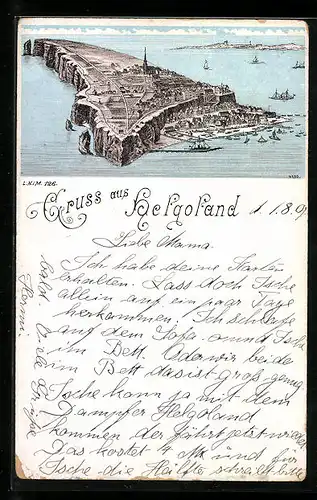 L.H.i.M. 726.
Gruss aus Helgoland d. 1.8.9
Liebe Mama.
Ich habe deine Karten
erhalten. Lass doch Ische
allein auf ein paar Tage
herkommen. Ich schlafe
auf dem Sofa und Ische
im Bett. Oder wir beide
im Bett das ist groß genug
Ische kann ja mit dem
Dampfer Helgoland
kommen der fährt jetzt wieder
Das kostet 4 Mk und für
Ische die Hälfte schreib bitte
bald Viele Grüße